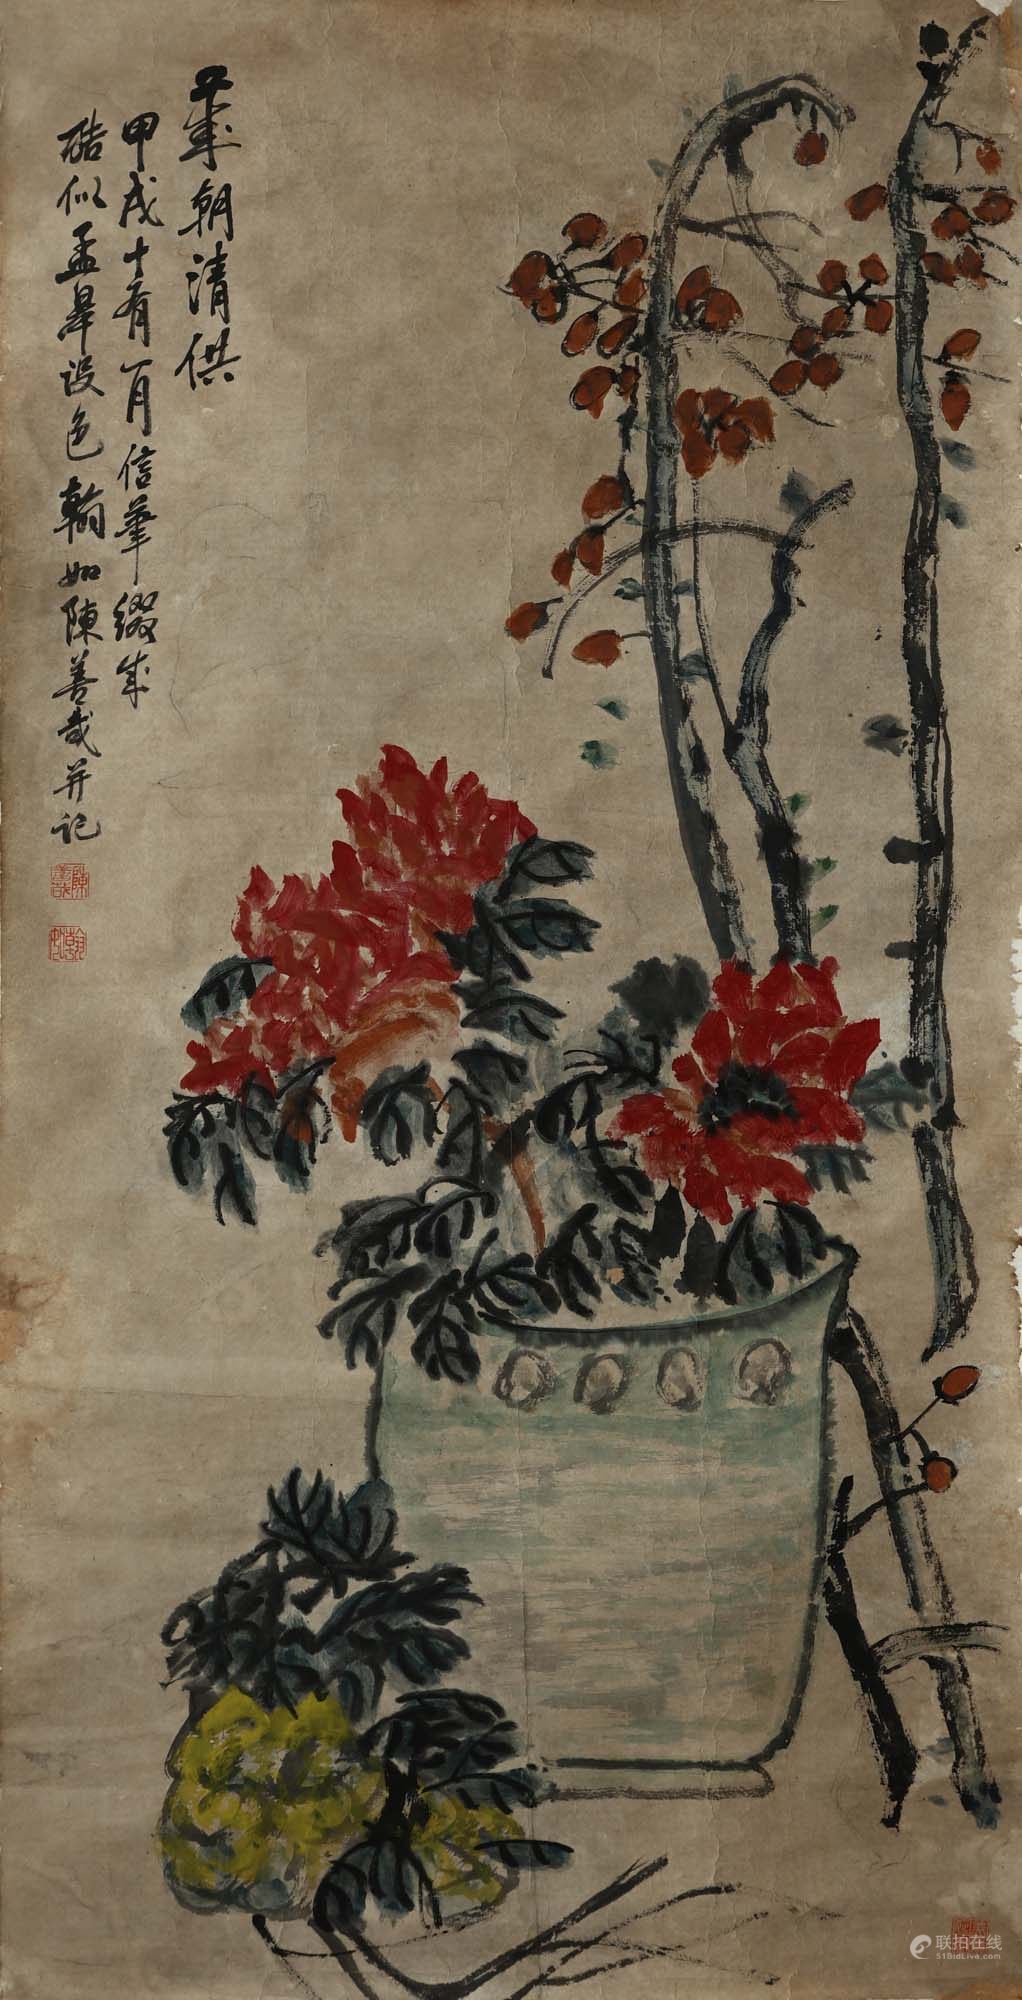 歲朝清供
甲戌十有一月信筆綴成
酷似孟皋設色翰如陳善哉并記
陳善哉
联拍在线
51BidLive.com